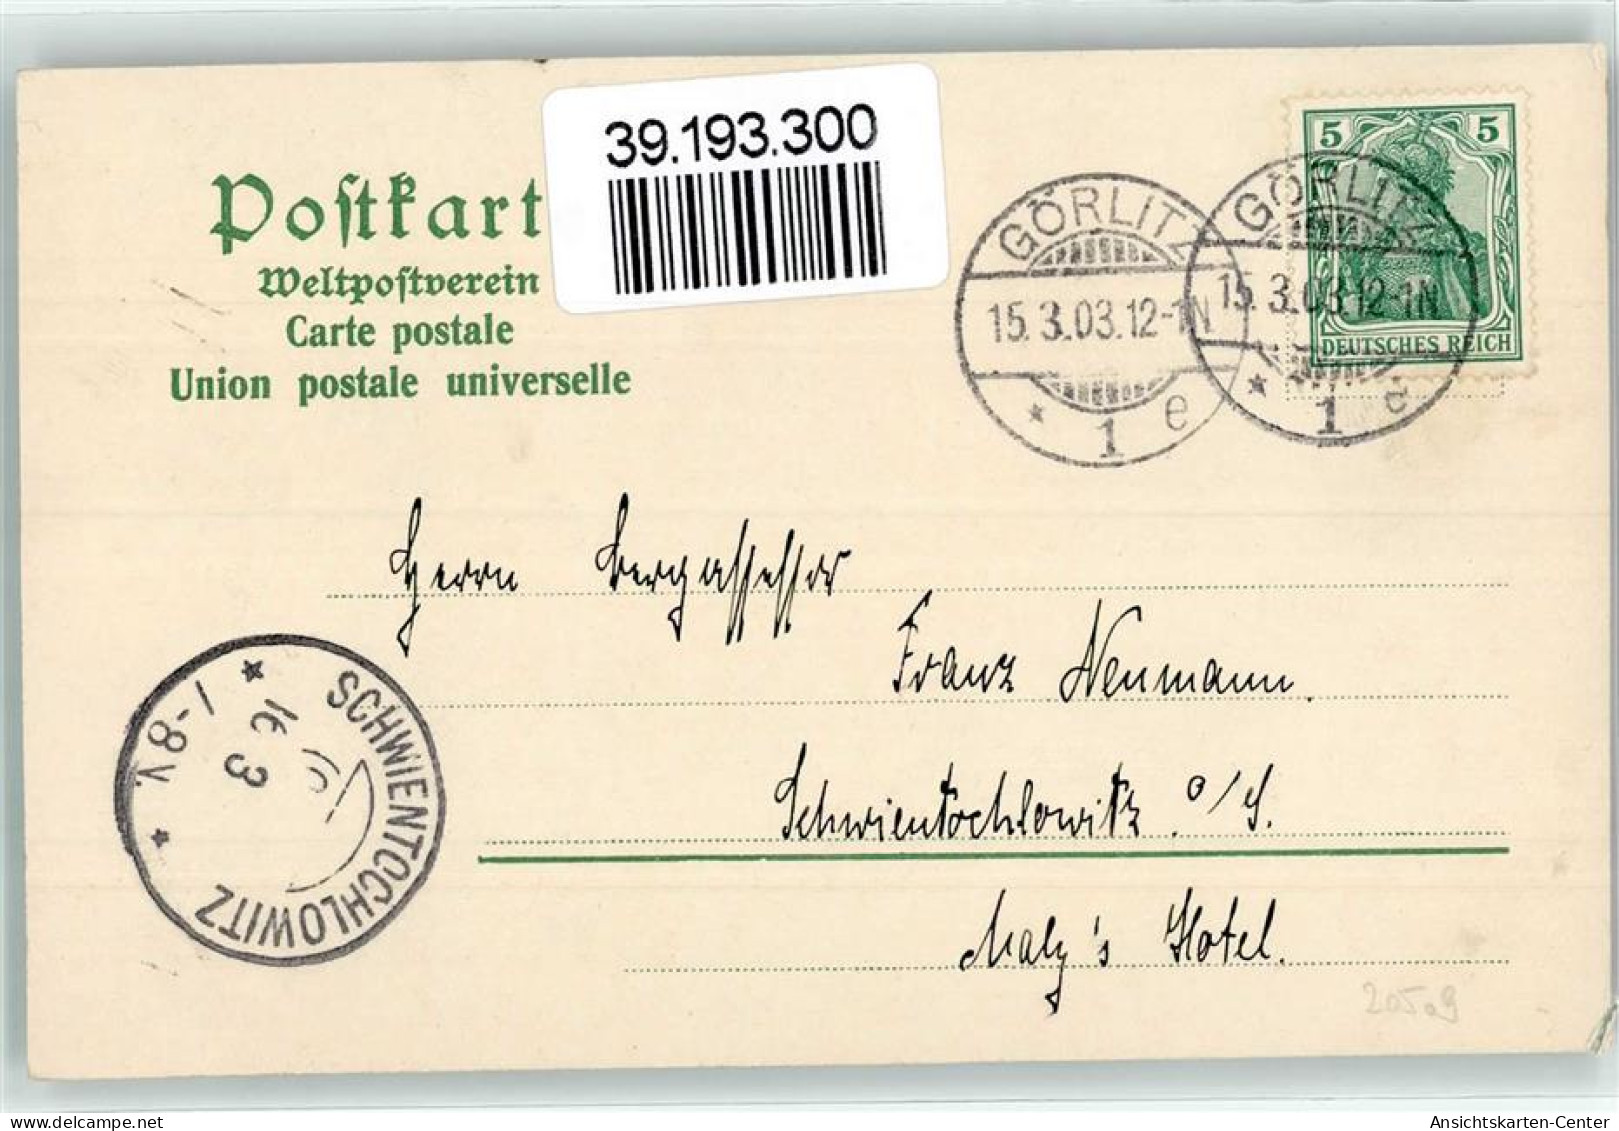 39.193.300
Postkart
Weltpostverein
Carte postale
Union postale universelle
5 5
DEUTSCHES REICH
GÖRLITZ
15.3.03.12-1N
* 1 e
GÖRLITZ
15.3.03.12-1N
* 1 e
Herrn Bergassessor
Franz Neumann.
Schwientochlowitz o/S.
Maly's Hotel.
SCHWIENTOCHLOWITZ
* 16 3
7-8V. *
Ansichtskarten-Center